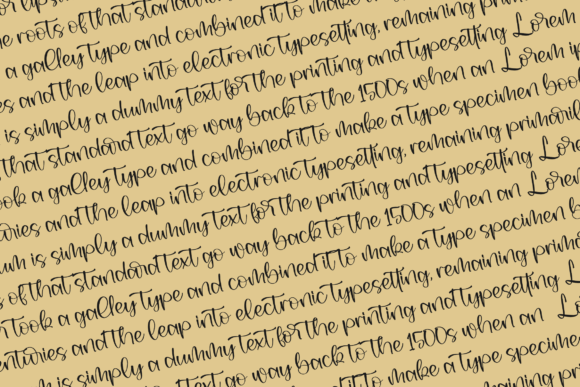 roots of that standard
a galley type and combined it to make
and the leap into electronic typesetting, remaining prim
is simply a dummy text for the printing and typesetting Lorem
that standard text go way back to the 1500s when an Lorem ip
ook a galley type and combined it to make a type specimen boo
uries and the leap into electronic typesetting, remaining primaril
um is simply a dummy text for the printing and typesetting Lore
s of that standard text go way back to the 1500s when an Lorem
n took a galley type and combined it to make a type specimen b
enturies and the leap into electronic typesetting, remaining prima
m is simply a dummy text for the printing and typesetting L
text go way back to the 1500s when an Lo
it to make a type specimen
remaining